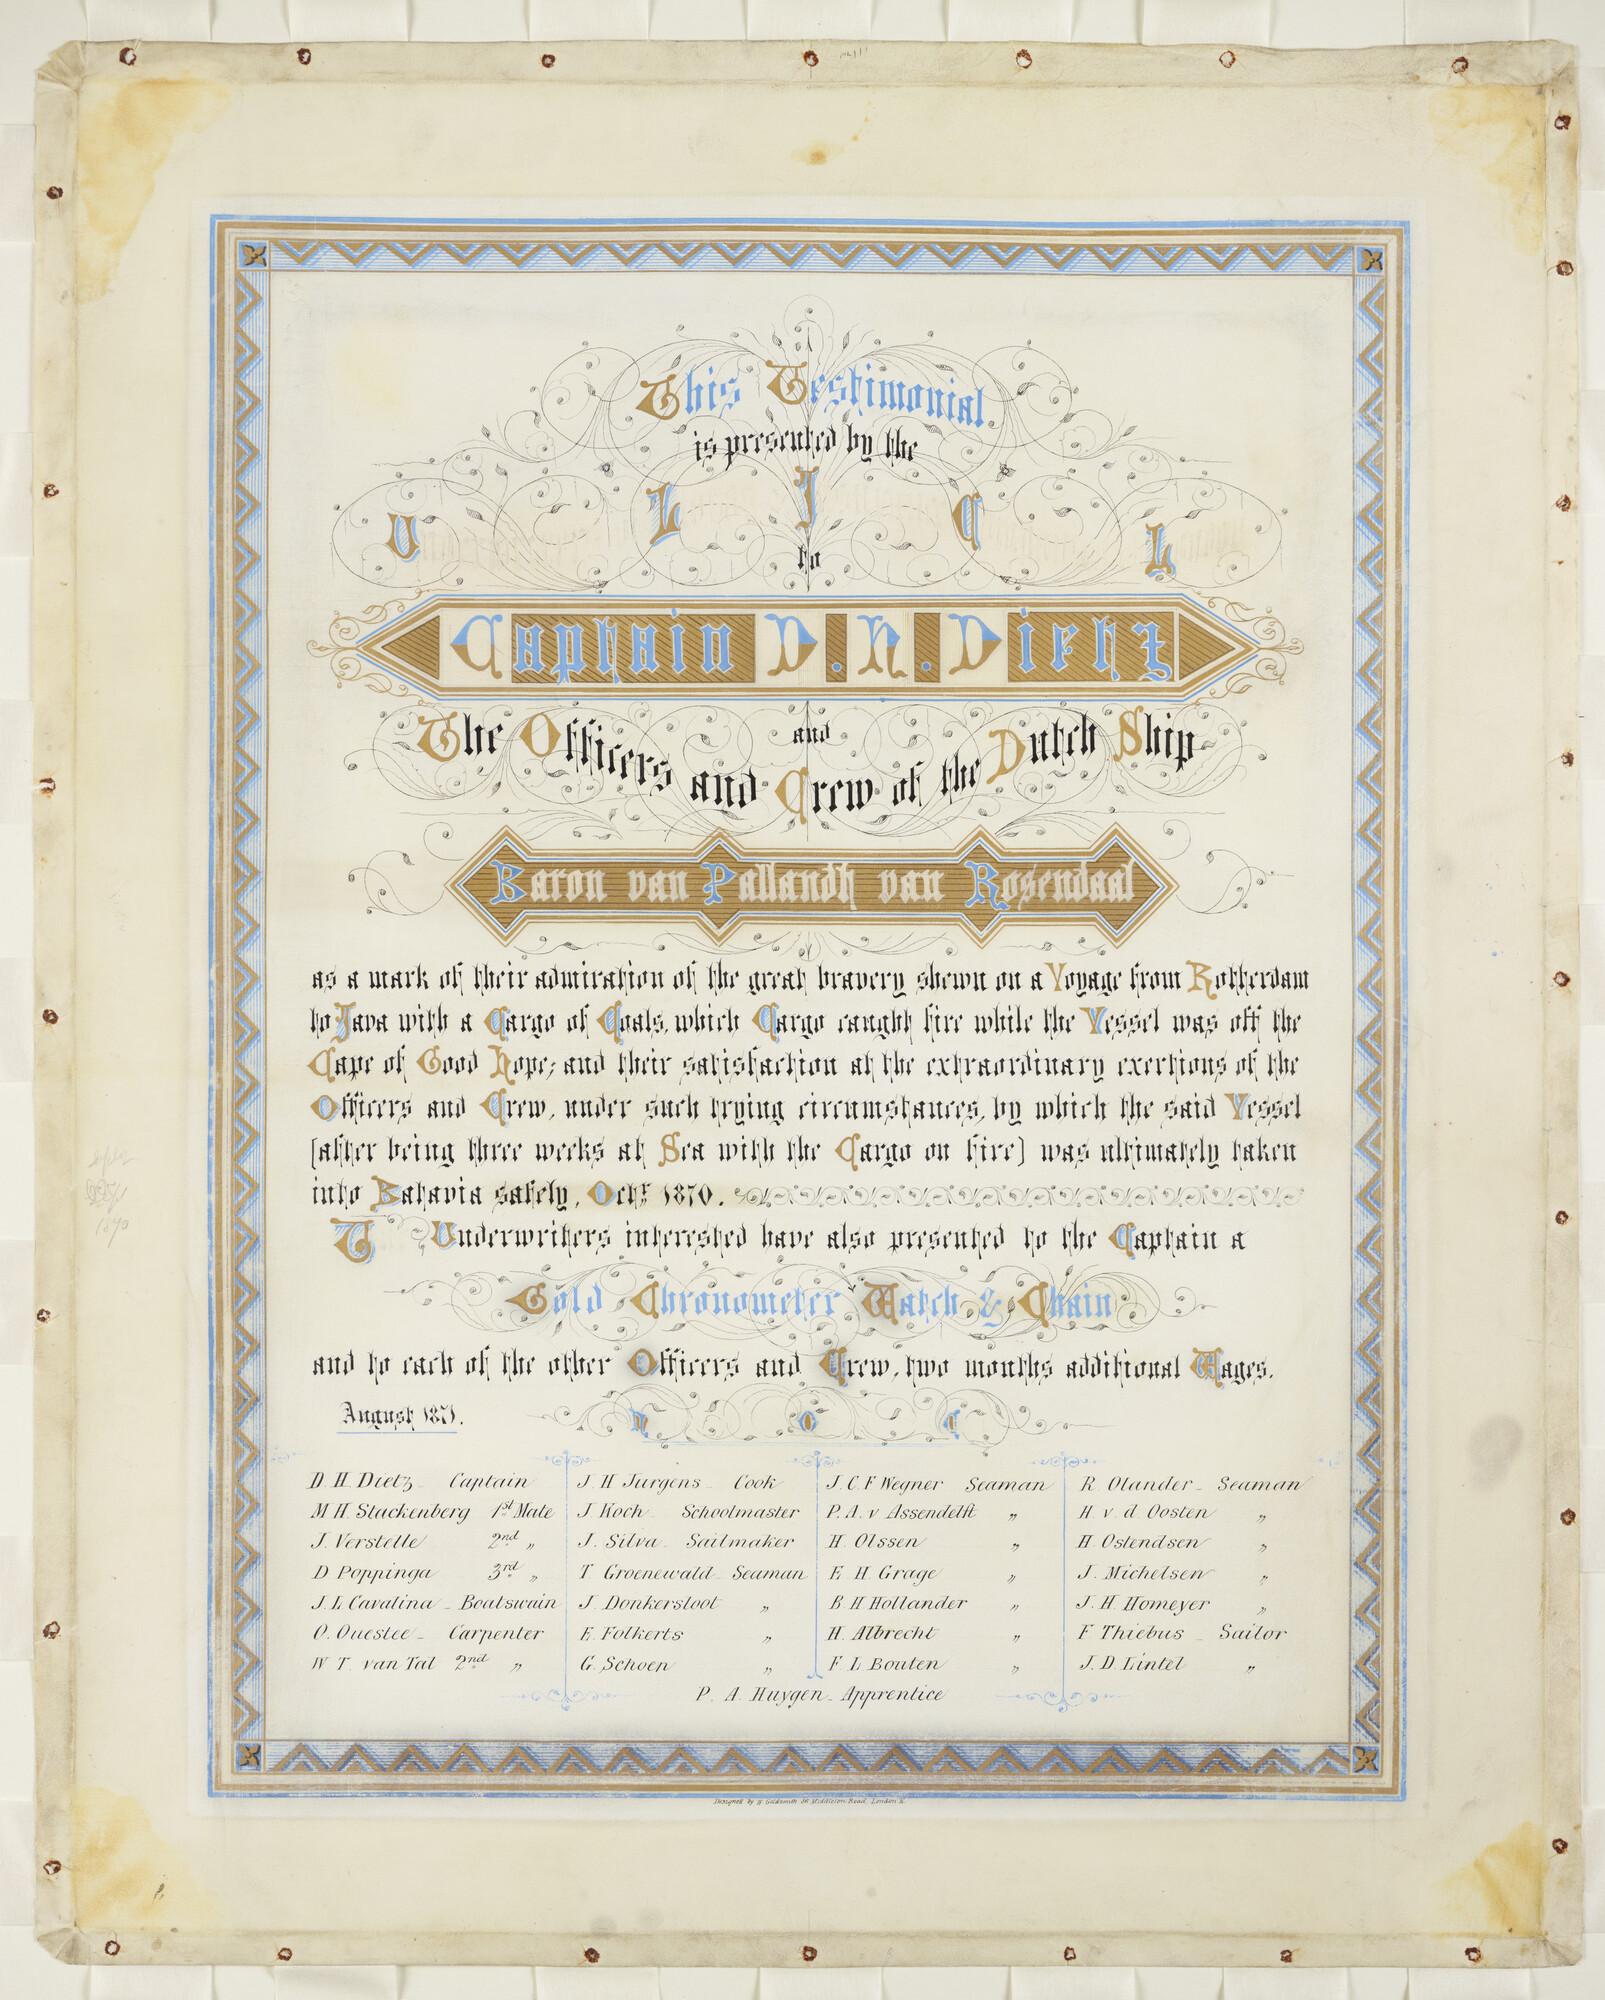 This Testimonial
is presented by the
U L I C L
to
Captain D. H. Dietz
and
The Officers and Crew of the Dutch Ship
Baron van Pallandt van Rosendaal
as a mark of their admiration of the great bravery shewn on a Voyage from Rotterdam
to Java with a Cargo of Coals, which Cargo caught fire while the Vessel was off the
Cape of Good Hope; and their satisfaction at the extraordinary exertions of the
Officers and Crew, under such trying circumstances, by which the said Vessel
(after being three weeks at Sea with the Cargo on fire) was ultimately taken
into Batavia safely, Octr. 1870.
T Underwriters interested have also presented to the Captain a
Gold Chronometer Watch & Chain
and to each of the other Officers and Crew, two months additional Wages.
August 1871.
N O C
D. H. Dietz - Captain
M H. Stackenberg 1st Mate
J. Verstelle 2nd „
D Poppinga 3rd „
J. L Cavalina - Boatswain
O. Ouestee - Carpenter
W T. van Tal 2nd „
J. H Jurgens - Cook
J. Koch Schoolmaster
J. Silva - Sailmaker
T. Groenewald - Seaman
J. Donkersloot „
E. Folkerts „
G. Schoen „
J. C. F Wegner Seaman
P. A. v Assendelft „
H. Olssen „
E H. Grage „
B H Hollander „
H. Albrecht „
F L Bouten „
R. Olander - Seaman
H v d. Oosten „
H Ostendsen „
J. Michelsen „
J. H. Homeyer „
F Thiebus - Sailor
J. D. Lintel „
P. A. Huygen - Apprentice
Designed by H Goldsmith Middleton Road, London
1870